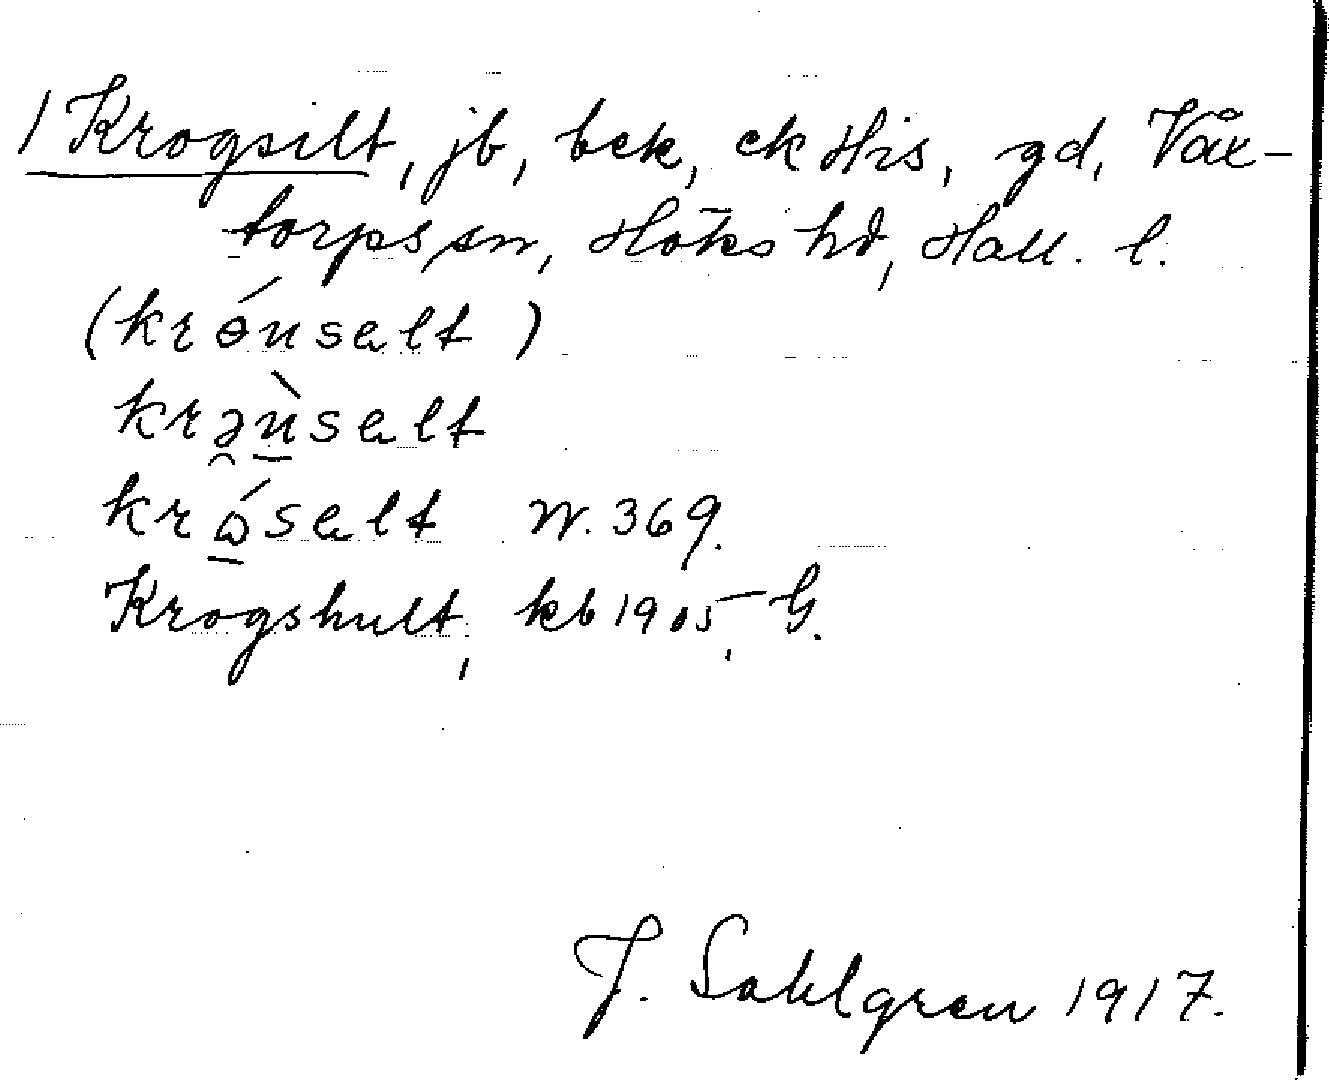 1 Krogsilt, jb, bek, ek His, gd, Våx-
torps sn, Höks hd, Hall. l.
(krǿnselt)
krə̯ṉ̀selt
krώ̱selt W. 369.
Krogshult, kb 1905, G.
J. Sahlgren 1917.